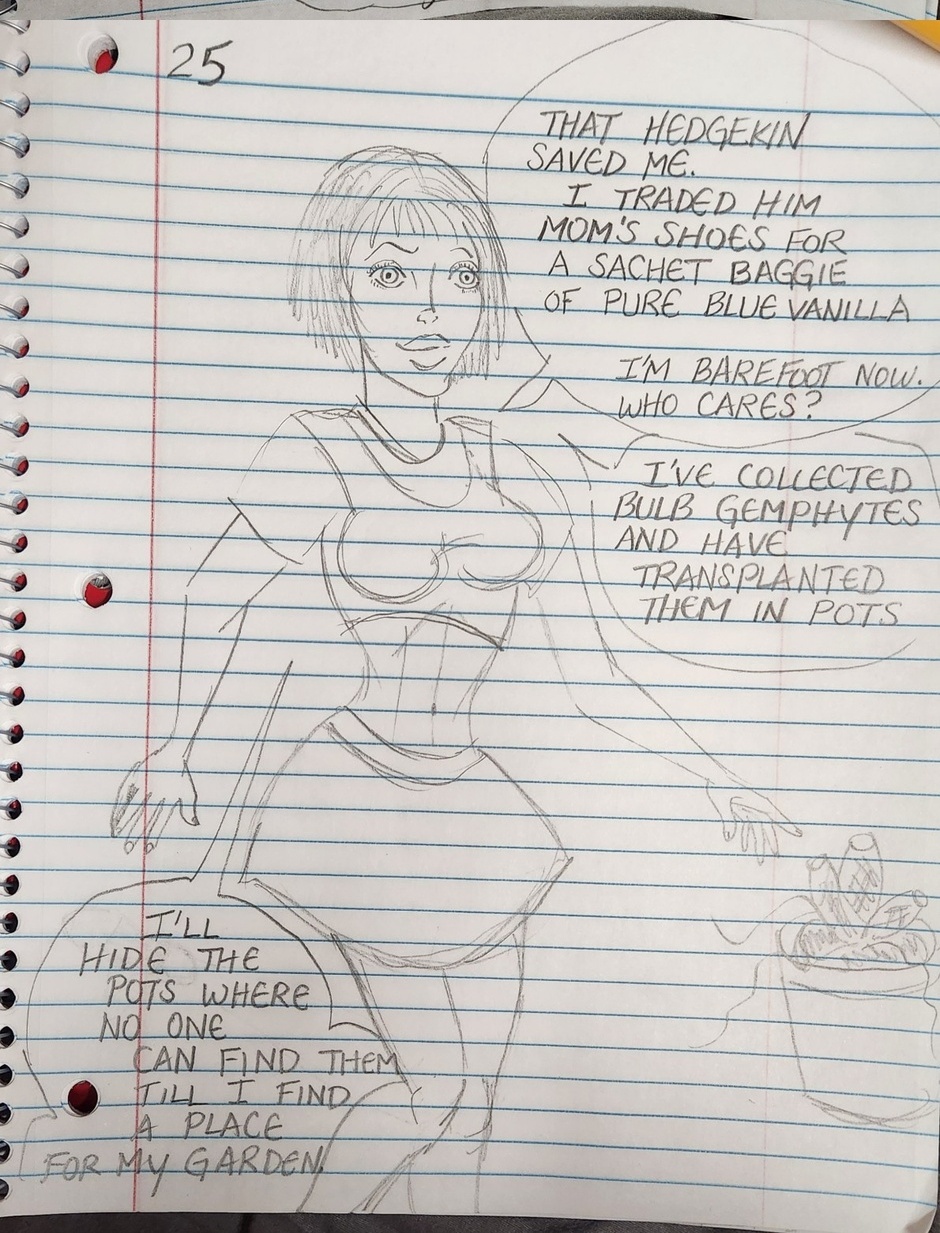 25
THAT HEDGEKIN
SAVED ME.
I TRADED HIM
MOM'S SHOES FOR
A SACHET BAGGIE
OF PURE BLUE VANILLA
I'M BAREFOOT NOW.
WHO CARES?
I'VE COLLECTED
BULB GEMPHYTES
AND HAVE
TRANSPLANTED
THEM IN POTS
I'LL
HIDE THE
POTS WHERE
NO ONE
CAN FIND THEM
TILL I FIND
A PLACE
FOR MY GARDEN.